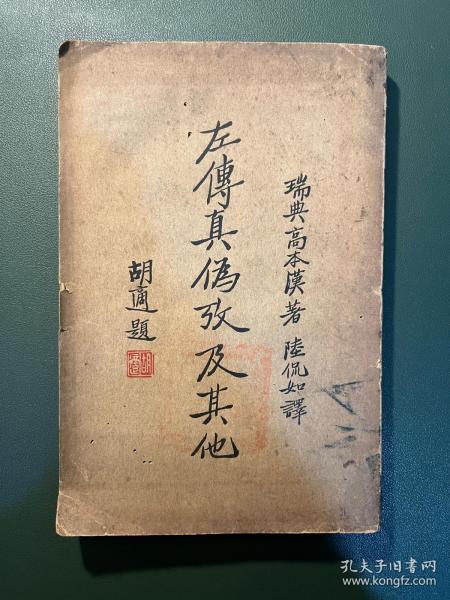 瑞典高本漢著 陸侃如譯
左傳真偽攷及其他
胡適題
胡適
孔夫子旧书网
www.kongfz.com